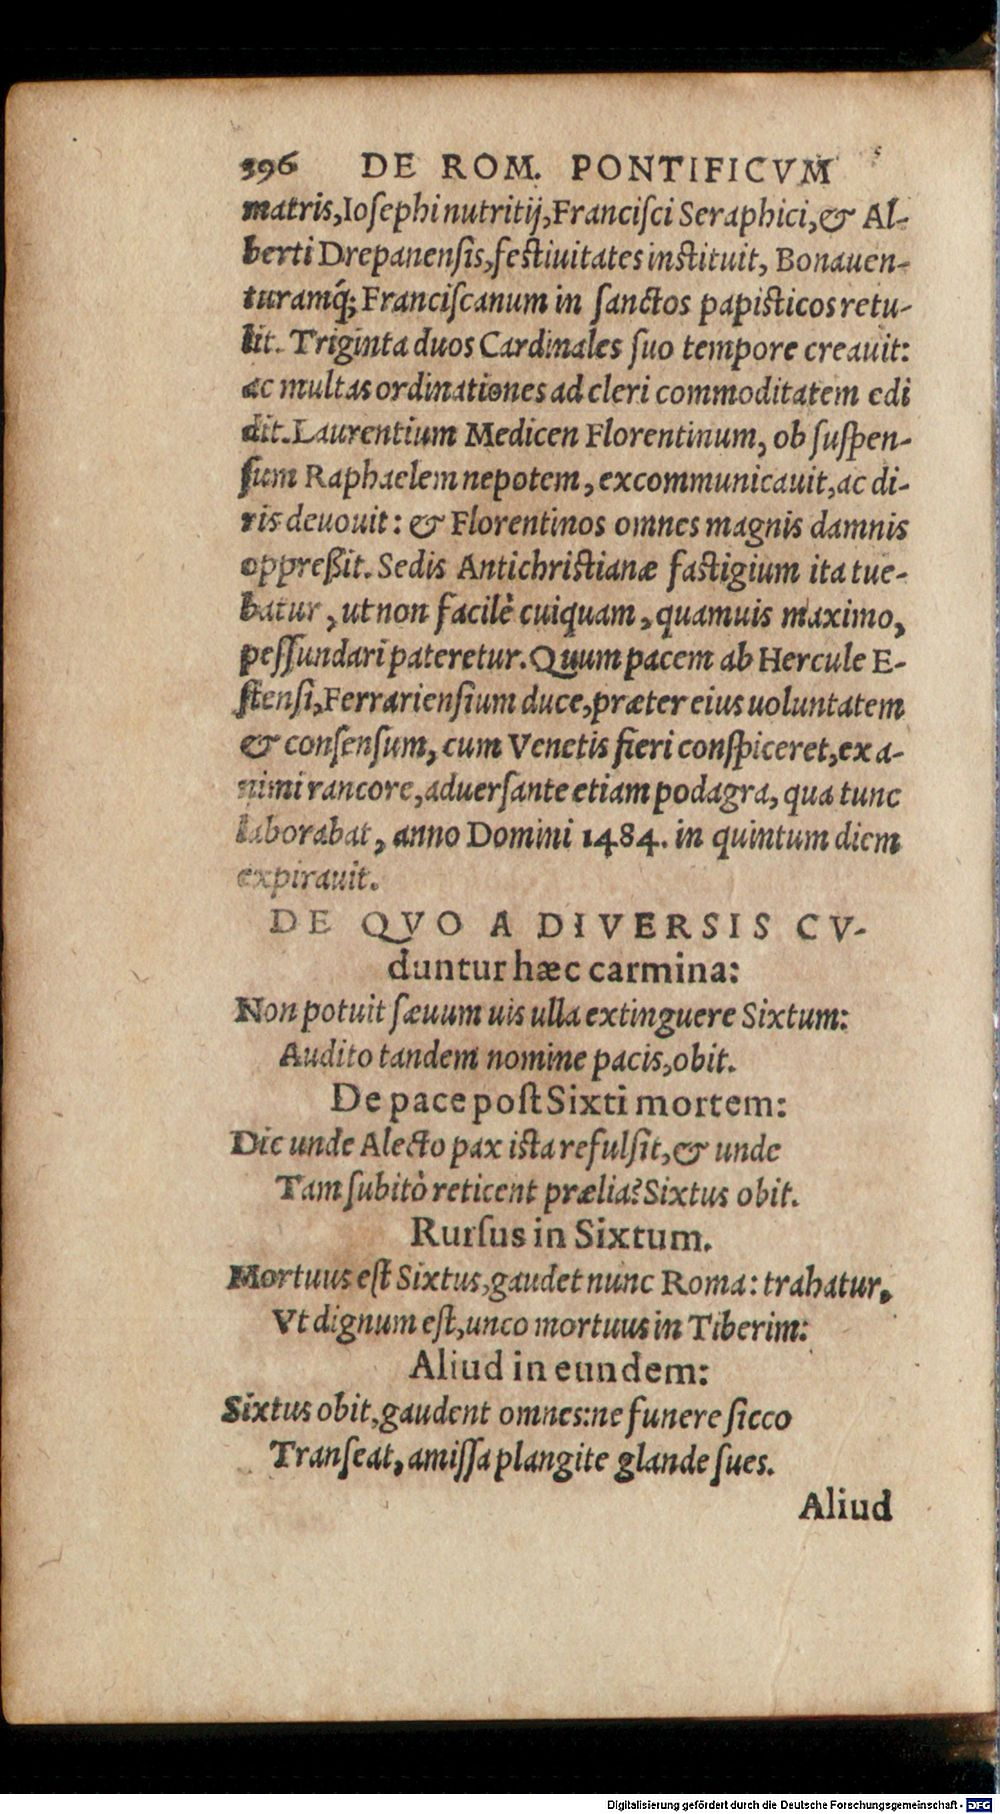 396 DE ROM. PONTIFICVM
matris,Ioſephi nutritij,Franciſci Seraphici,& Al-
berti Drepanenſis,feſtiuitates inſtituit, Bonauen-
turamq́; Franciſcanum in ſanctos papiſticos retu-
lit. Triginta duos Cardinales ſuo tempore creauit:
ac multas ordinationes ad cleri commoditatem edi
dit. Laurentium Medicen Florentinum, ob ſuſpen-
ſum Raphaelem nepotem, excommunicauit,ac di-
ris deuouit: & Florentinos omnes magnis damnis
oppreßit. Sedis Antichriſtianæ faſtigium ita tue-
batur, ut non facilè cuiquam, quamuis maximo,
peſſundari pateretur. Quum pacem ab Hercule E-
ſtenſi,Ferrarienſium duce,præter eius uoluntatem
& conſenſum, cum Venetis fieri conſpiceret,ex a-
nimi rancore,aduerſante etiam podagra, qua tunc
laborabat, anno Domini 1484. in quintum diem
expirauit.
DE QVO A DIVERSIS CV-
duntur hæc carmina:
Non potuit ſæuum uis ulla extinguere Sixtum:
Audito tandem nomine pacis,obit.
De pace poſt Sixti mortem:
Dic unde Alecto pax iſta refulſit,& unde
Tam ſubitò reticent prælia? Sixtus obit.
Rurſus in Sixtum.
Mortuus eſt Sixtus,gaudet nunc Roma: trahatur,
Vt dignum eſt,unco mortuus in Tiberim:
Aliud in eundem:
Sixtus obit,gaudent omnes:ne funere ſicco
Tranſeat, amiſſa plangite glande ſues.
Aliud
Digitalisierung gefördert durch die Deutsche Forschungsgemeinschaft - DFG